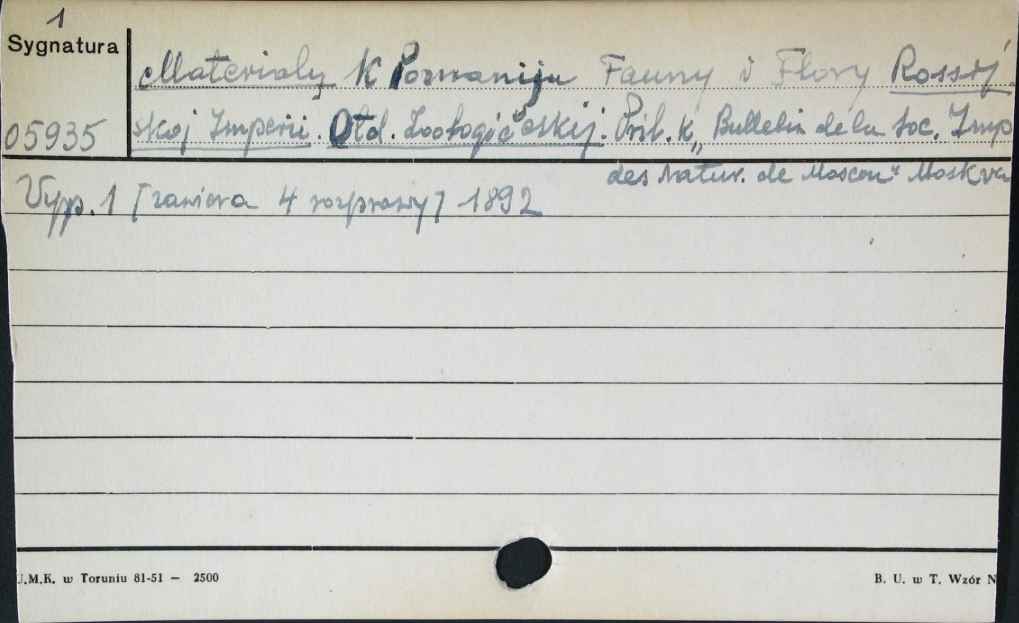 1
Sygnatura
Materialy K Poznaniju Fauny i Flory Rossij
05935
skoj Imperii. Otd. Zoologičeskij. Pril. k „Bulletin de la Soc. Imp
des Natur. de Moscou" Moskva
Vyp. 1 [zawiera 4 rozprawy] 1892
U.M.K. w Toruniu 81-51 — 2500
B. U. w T. Wzór N